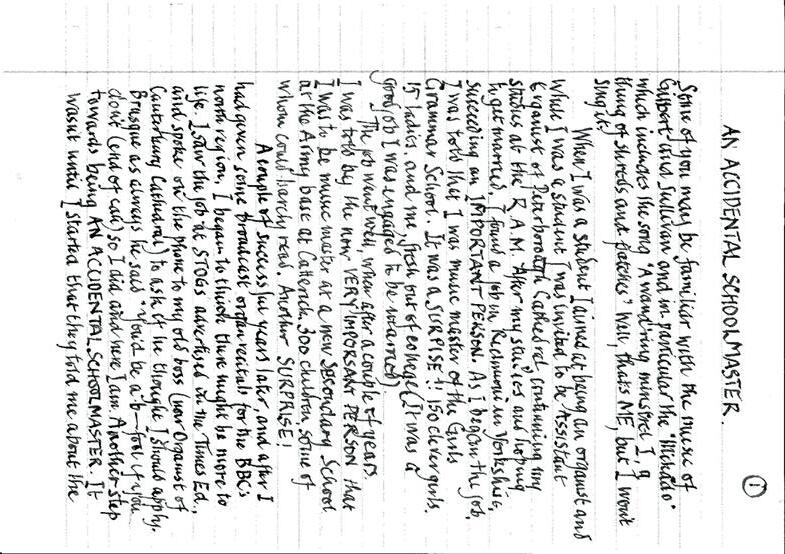 ①
AN ACCIDENTAL SCHOOLMASTER.
Some of you may be familiar with the music of
Gilbert and Sullivan and in particular the "Mikado"
which includes the song 'A wand'ring minstrel I, a
thing of shreds and patches' Well, thats ME, but I wont
sing it!
When I was a student I aimed at being an organist and
while I was a student I was invited to be Assistant
Organist of Peterborough Cathedral continuing my
studies at the R.A.M. After my studies and hoping
to get married, I found a job in Richmond in Yorkshire,
succeeding an IMPORTANT PERSON. As I began the job,
I was told that I was music master of the Girls
Grammar School. It was a SURPRISE!! 150 clever girls,
15 ladies, and me, fresh out of college (It was a
good job I was engaged to be married)
The job went well, when after a couple of years,
I was told by the now VERY IMPORSANT PERSON that
I was to be music master at a new Secondary School
at the Army base at Catterick. 300 children, some of
whom could barely read. Another SURPRISE!
A couple of successful years later, and after I
had given some broadcast organ recitals for the BBCs
north region, I began to think there might be more to
life. I saw the job at STOGS advertised in the Times Ed.,
and spoke on the phone to my old boss (now Organist of
Canterbury Cathedral) to ask if he thought I should apply.
Brusque as always he said "you'd be a b— fool if you
dont (end of call) so I did and here I am. Another step
towards being AN ACCIDENTAL SCHOOLMASTER. It
wasnt until I started that they told me about the